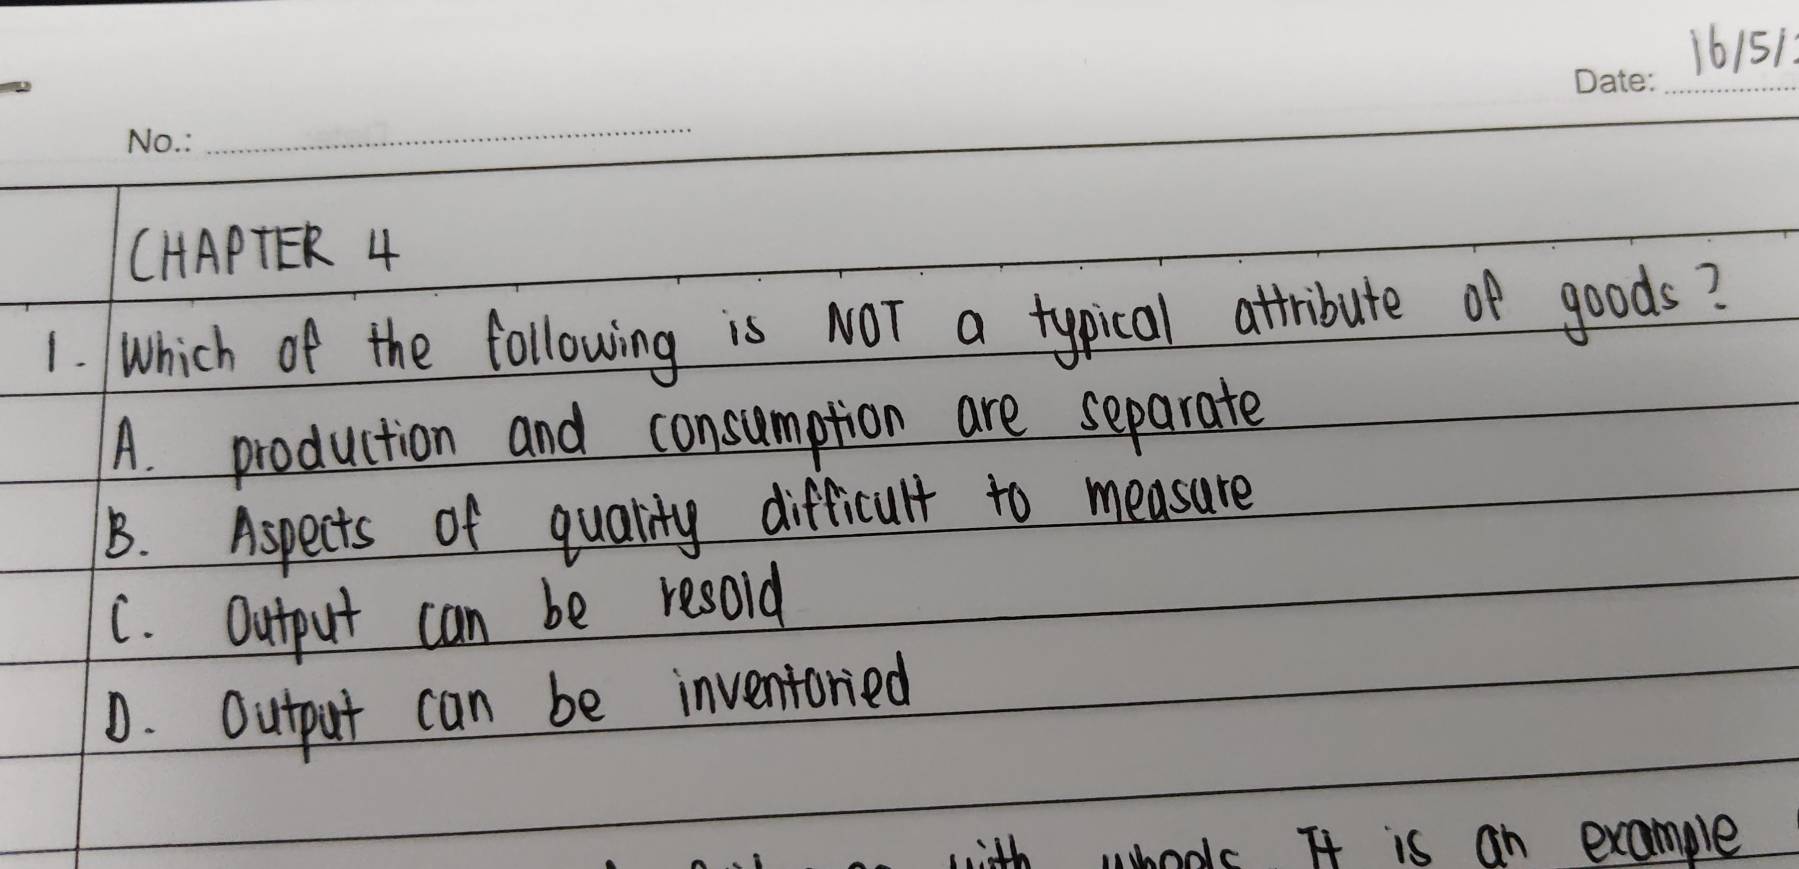 Date: 16/5/
No.:
CHAPTER 4
1. Which of the following is NOT a typical attribute of goods?
A. production and consumption are separate
B. Aspects of quality difficult to measure
C. Output can be resold
D. Output can be inventoried
with wheels. It is an example